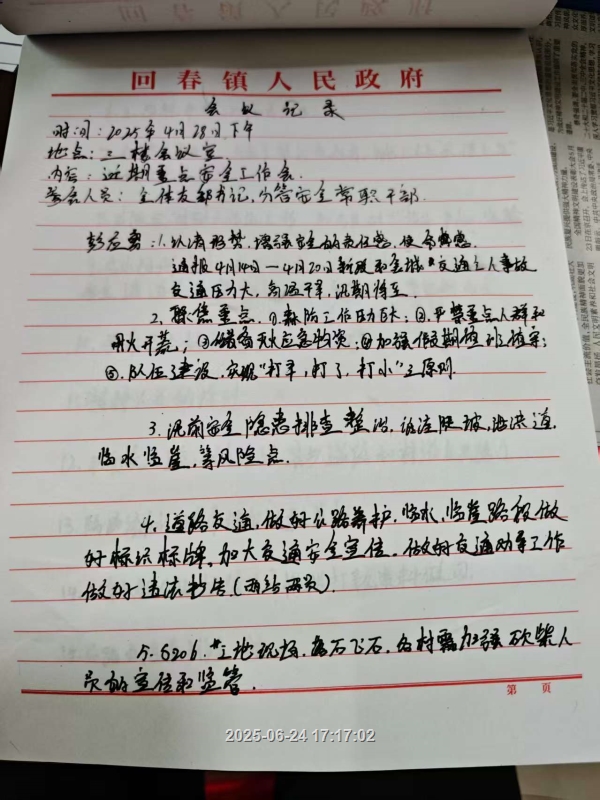 回春镇人民政府
会议记录
时间：2025年4月28日下午
地点：三楼会议室
内容：近期重点安全工作会
参会人员：全体支部书记，分管安全常职干部
1.认清形势，增强安全的责任感，使命感.
通报4月14日—4月20日 交通亡人事故
交通压力大，高温干旱，汛期将至.
2、聚焦重点，①森防工作压力大；②严禁重点人群和
用火； ③储备灭火应急物资；④加强假期值班值守；
⑤.队伍建设，实现"打早，打了，打小"三原则.
3.汛前安全隐患排查整治，泄洪道，
临水临崖，等风险点.
4.道路交通，做好公路养护，临水，临崖路段做
好标识标牌，加大交通安全宣传，做好交通劝导工作
做好违法抄告（两站两员）.
5.G206."工地现场，落石飞石，各村需加强砍柴人
员的宣传和监管.
第 页
2025-06-24 17:17:02